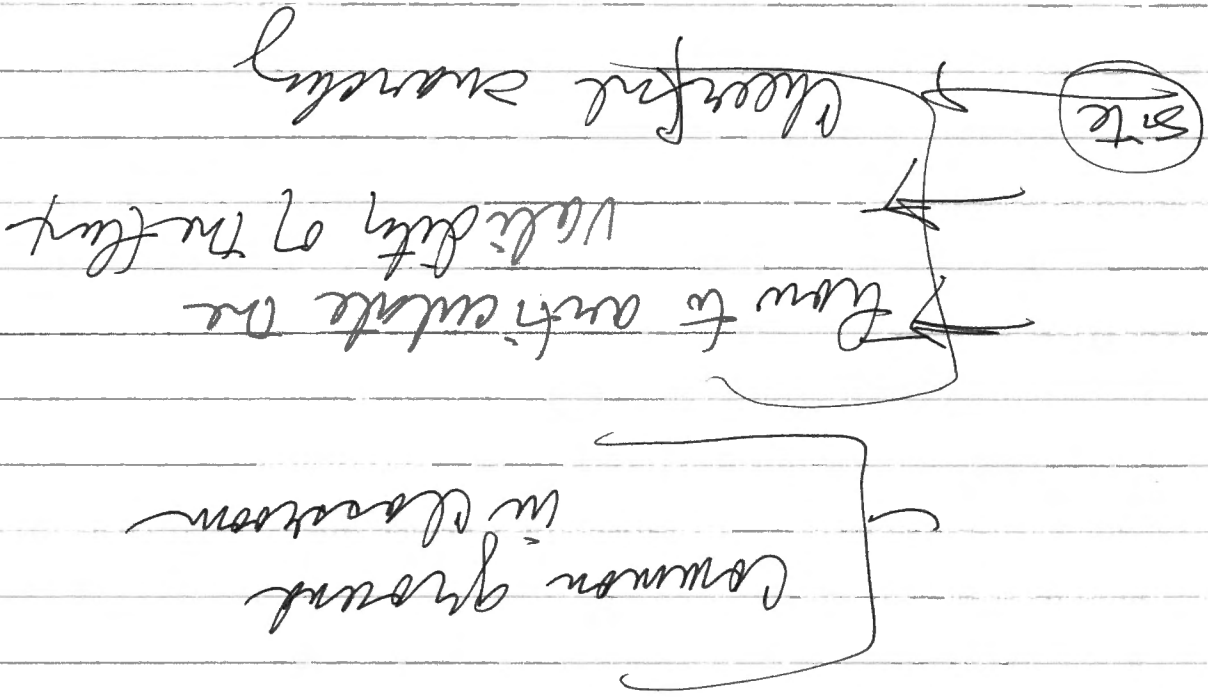 Common ground
in classroom
How to articulate the
validity of the flux
Site Cheerful anarchy